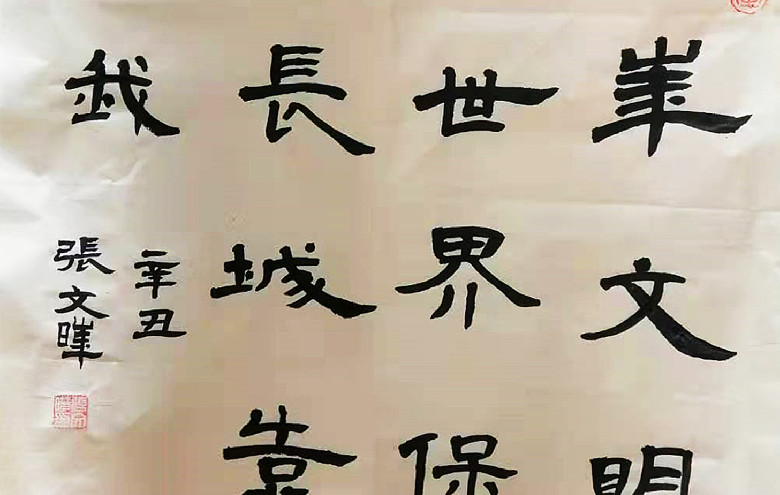 文明
世界保
長城
我
辛丑
張文暉